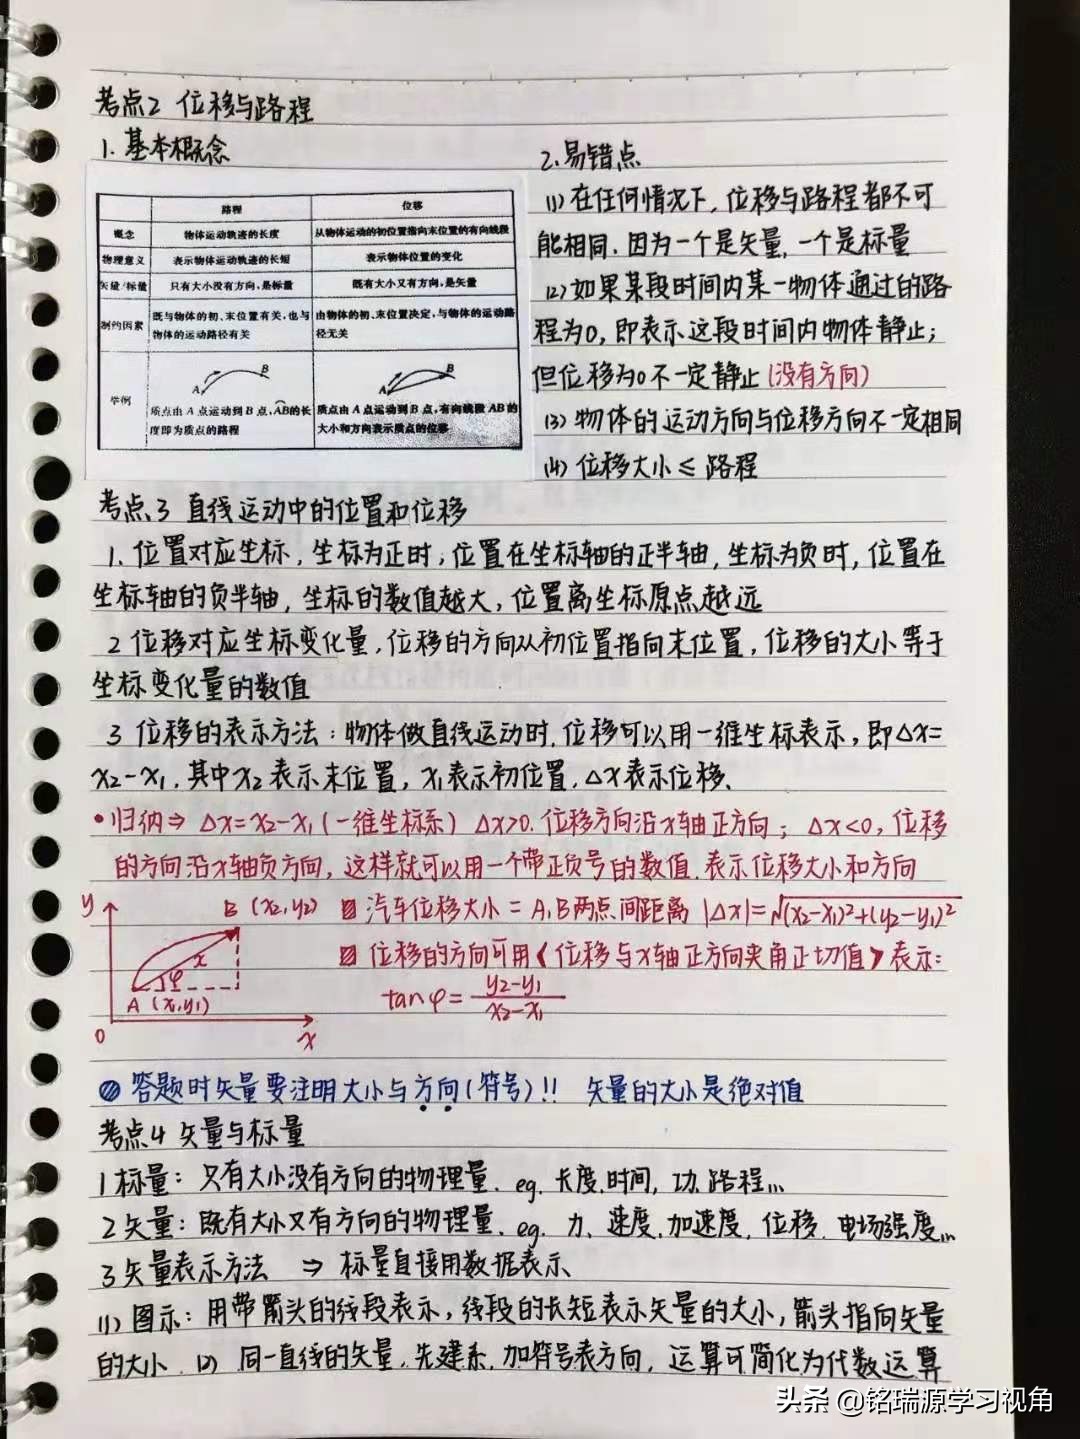 考点2 位移与路程
1. 基本概念
路程 位移
概念 物体运动轨迹的长度 从物体运动的初位置指向末位置的有向线段
物理意义 表示物体运动轨迹的长短 表示物体位置的变化
矢量/标量 只有大小没有方向,是标量 既有大小又有方向,是矢量
制约因素 既与物体的初、末位置有关,也与 由物体的初、末位置决定,与物体的运动路
物体的运动路径有关 径无关
举例 A B A B
质点由A点运动到B点,AB的长 质点由A点运动到B点,有向线段AB的
度即为质点的路程 大小和方向表示质点的位移
2.易错点
(1)在任何情况下,位移与路程都不可
能相同.因为一个是矢量,一个是标量
(2)如果某段时间内某一物体通过的路
程为0,即表示这段时间内物体静止;
但位移为0不一定静止(没有方向)
(3)物体的运动方向与位移方向不一定相同
(4)位移大小≤路程
考点3 直线运动中的位置和位移
1.位置对应坐标,坐标为正时,位置在坐标轴的正半轴,坐标为负时,位置在
坐标轴的负半轴,坐标的数值越大,位置离坐标原点越远
2 位移对应坐标变化量,位移的方向从初位置指向末位置,位移的大小等于
坐标变化量的数值
3 位移的表示方法:物体做直线运动时.位移可以用一维坐标表示,即Δx=
x2-x1.其中x2表示末位置,x1表示初位置.Δx表示位移.
•归纳⇒ Δx=x2-x1(一维坐标系) Δx>0.位移方向沿x轴正方向; Δx<0,位移
的方向沿x轴负方向,这样就可以用一个带正负号的数值.表示位移大小和方向
y B (x2,y2) x φ A (x1,y1) 0 x
汽车位移大小=A,B两点间距离 |Δx|=√(x2-x1)²+(y2-y1)²
位移的方向可用《位移与x轴正方向夹角正切值》表示:
tanφ= y2-y1 / x2-x1
答题时矢量要注明大小与方向(符号)!! 矢量的大小是绝对值
考点4 矢量与标量
1标量:只有大小没有方向的物理量. eg. 长度.时间,功.路程...
2矢量:既有大小又有方向的物理量. eg. 力、速度.加速度,位移.电场强度...
3矢量表示方法 ⇒ 标量直接用数据表示
(1)图示:用带箭头的线段表示,线段的长短表示矢量的大小,箭头指向矢量
的大小. (2) 同一直线的矢量.先建系.加符号表方向,运算可简化为代数运算
头条 @铭瑞源学习视角